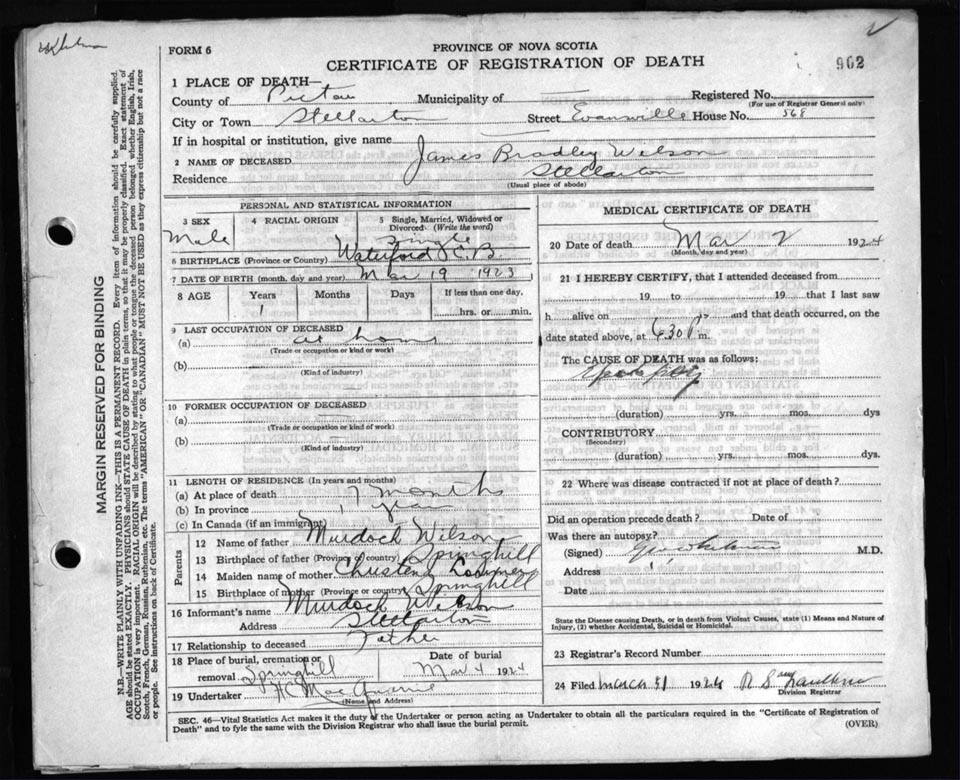 FORM 6
PROVINCE OF NOVA SCOTIA
CERTIFICATE OF REGISTRATION OF DEATH
902
1 PLACE OF DEATH—
County of Pictou Municipality of Registered No.
(For use of Registrar General only)
City or Town Stellarton Street Evansville House No. 568
If in hospital or institution, give name
2 NAME OF DECEASED James Bradley Wilson
Residence Stellarton
(Usual place of abode)
PERSONAL AND STATISTICAL INFORMATION
3 SEX
Male
4 RACIAL ORIGIN
5 Single, Married, Widowed or Divorced (Write the word)
Single
6 BIRTHPLACE (Province or Country) Waterford C.B.
7 DATE OF BIRTH (month, day and year) Mar 19 1923
8 AGE
Years
Months
Days
If less than one day,
1
hrs. or min.
9 LAST OCCUPATION OF DECEASED
(a) at home
(Trade or occupation or kind of work)
(b)
(Kind of industry)
10 FORMER OCCUPATION OF DECEASED
(a)
(Trade or occupation or kind of work)
(b)
(Kind of industry)
11 LENGTH OF RESIDENCE (In years and months)
(a) At place of death 7 months
(b) In province 1 year
(c) In Canada (if an immigrant)
Parents
12 Name of father Murdock Wilson
13 Birthplace of father (Province or country) Springhill
14 Maiden name of mother
15 Birthplace of mother (Province or country) Springhill
16 Informant's name Murdock Wilson
Address Stellarton
17 Relationship to deceased Father
18 Place of burial, cremation or removal Springhill
Date of burial
Mar 4 1924
19 Undertaker
(Name and Address)
MEDICAL CERTIFICATE OF DEATH
20 Date of death Mar 2 1924
(Month, day and year)
21 I HEREBY CERTIFY, that I attended deceased from
19 to 19 that I last saw
h alive on and that death occurred, on
date stated above, at 630 P m.
The CAUSE OF DEATH was as follows:
(duration) yrs. mos. dys
CONTRIBUTORY
(Secondary)
(duration) yrs. mos. dys.
22 Where was disease contracted if not at place of death?
Did an operation precede death? Date of
Was there an autopsy?
(Signed) M.D.
Address
Date
State the Disease causing Death, or in death from Violent Causes, state (1) Means and Nature of Injury, (2) whether Accidental, Suicidal or Homicidal.
23 Registrar's Record Number
24 Filed March 31 1924
Division Registrar
SEC. 46—Vital Statistics Act makes it the duty of the Undertaker or person acting as Undertaker to obtain all the particulars required in the "Certificate of Registration of
Death" and to fyle the same with the Division Registrar who shall issue the burial permit.
(OVER)
MARGIN RESERVED FOR BINDING
N.B.—WRITE PLAINLY WITH UNFADING INK—THIS IS A PERMANENT RECORD. Every item of information should be carefully supplied.
AGE should be stated EXACTLY. PHYSICIANS should STATE CAUSE OF DEATH in plain terms, so that it may be properly classified. Exact statement of
OCCUPATION is very important. RACIAL ORIGIN will be described by stating to what people or tongue the deceased person belonged whether English, Irish,
Scotch, French, German, Russian, Ruthenian, etc. The terms "AMERICAN" OR "CANADIAN" MUST NOT BE USED as they express citizenship but not a race
or people. See instructions on back of Certificate.